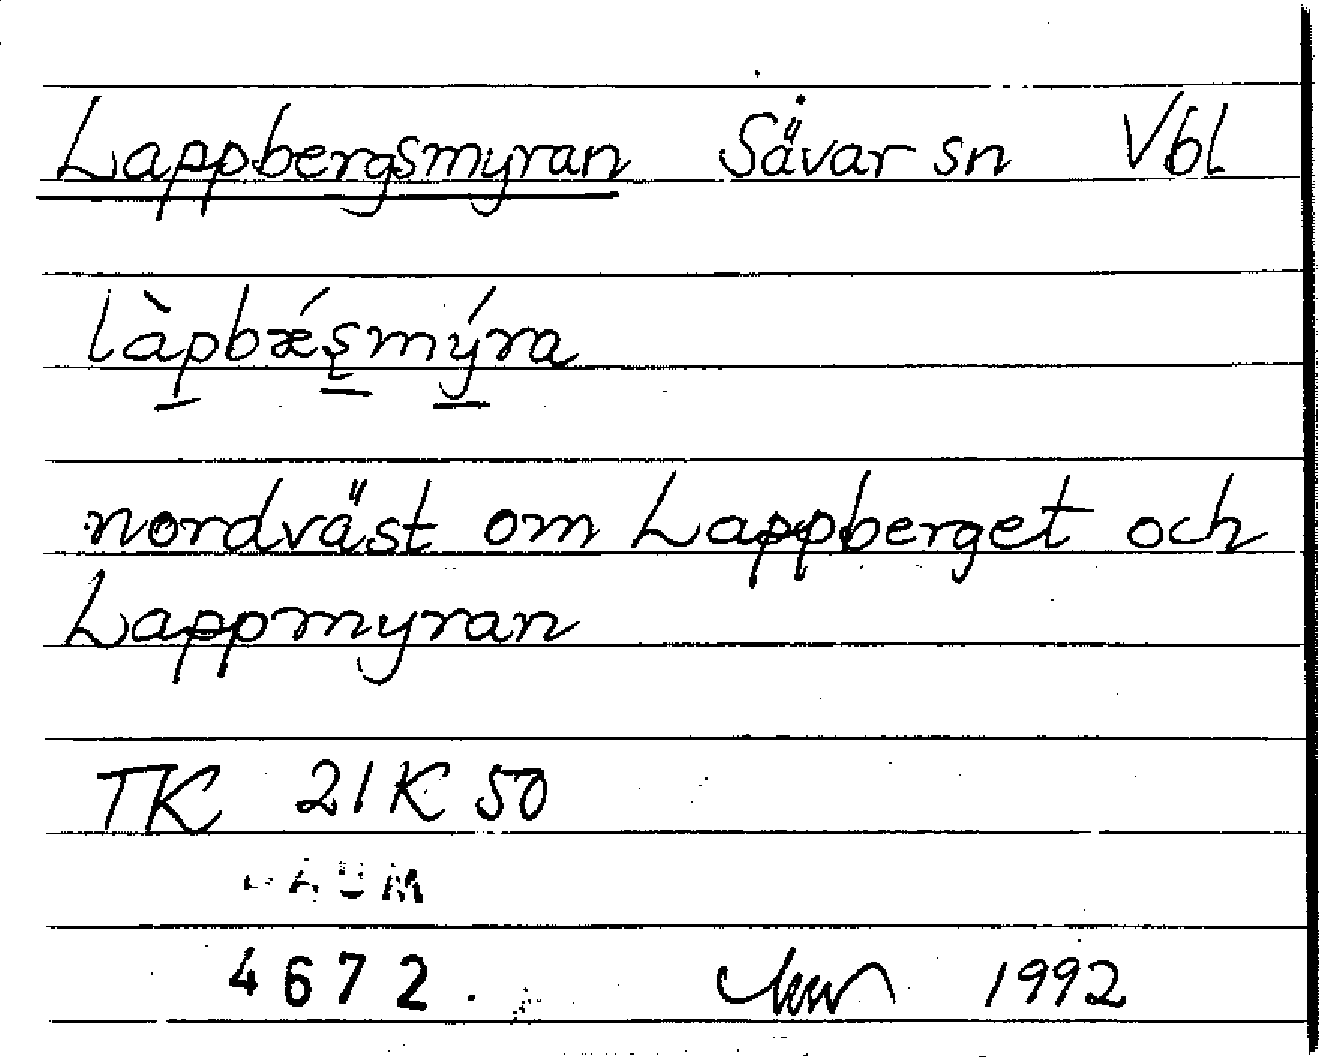 Lappbergsmyran Sävar sn Vbl
làpbǽşmýra
nordväst om Lappberget och
Lappmyran
TK 21K 50
DAUM
4672. 1992